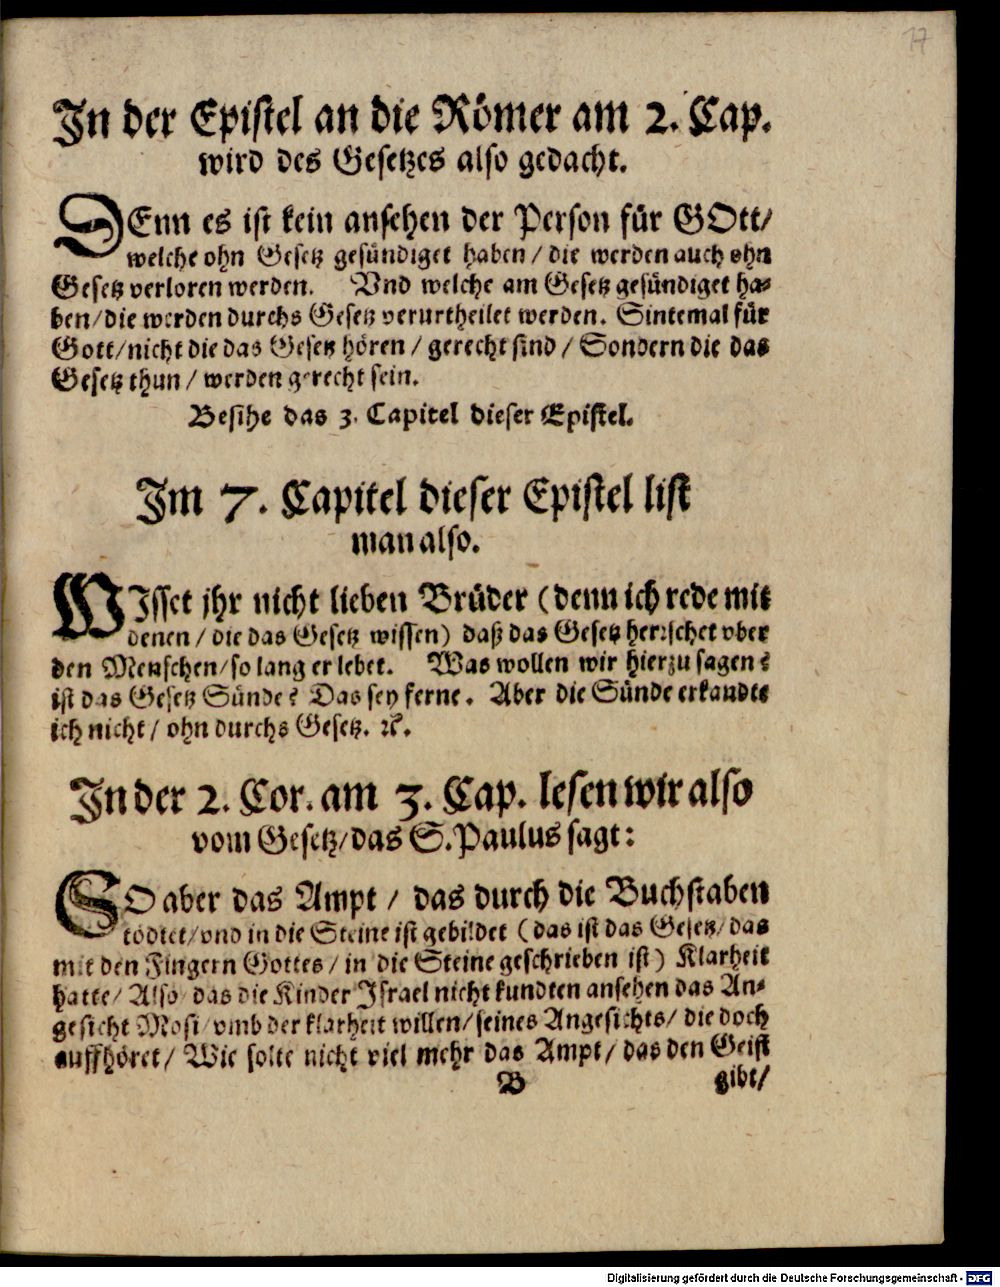 17
In der Epistel an die Römer am 2. Cap.
wird des Gesetzes also gedacht.
DEnn es ist kein ansehen der Person für GOtt/
welche ohn Gesetz gesündiget haben / die werden auch ohn
Gesetz verloren werden. Vnd welche am Gesetz gesündiget ha-
ben/die werden durchs Gesetz verurtheilet werden. Sintemal für
Gott/nicht die das Gesetz hören / gerecht sind / Sondern die das
Gesetz thun / werden gerecht sein.
Besihe das 3. Capitel dieser Epistel.
Im 7. Capitel dieser Epistel list
man also.
WIsset jhr nicht lieben Brüder (denn ich rede mit
denen / die das Gesetz wissen) daß das Gesetz herrschet vber
den Menschen/so lang er lebet. Was wollen wir hierzu sagen?
ist das Gesetz Sünde? Das sey ferne. Aber die Sünde erkandte
ich nicht/ ohn durchs Gesetz. ꝛc.
In der 2. Cor. am 3. Cap. lesen wir also
vom Gesetz/das S. Paulus sagt:
SO aber das Ampt / das durch die Buchstaben
tödtet/vnd in die Steine ist gebildet (das ist das Gesetz/das
mit den Fingern Gottes/ in die Steine geschrieben ist) Klarheit
hatte/ Also/ das die Kinder Israel nicht kundten ansehen das An-
gesicht Mosi/vmb der klarheit willen/seines Angesichts/ die doch
auffhöret/ Wie solte nicht viel mehr das Ampt/ das den Geist
B
gibt/
Digitalisierung gefördert durch die Deutsche Forschungsgemeinschaft - DFG